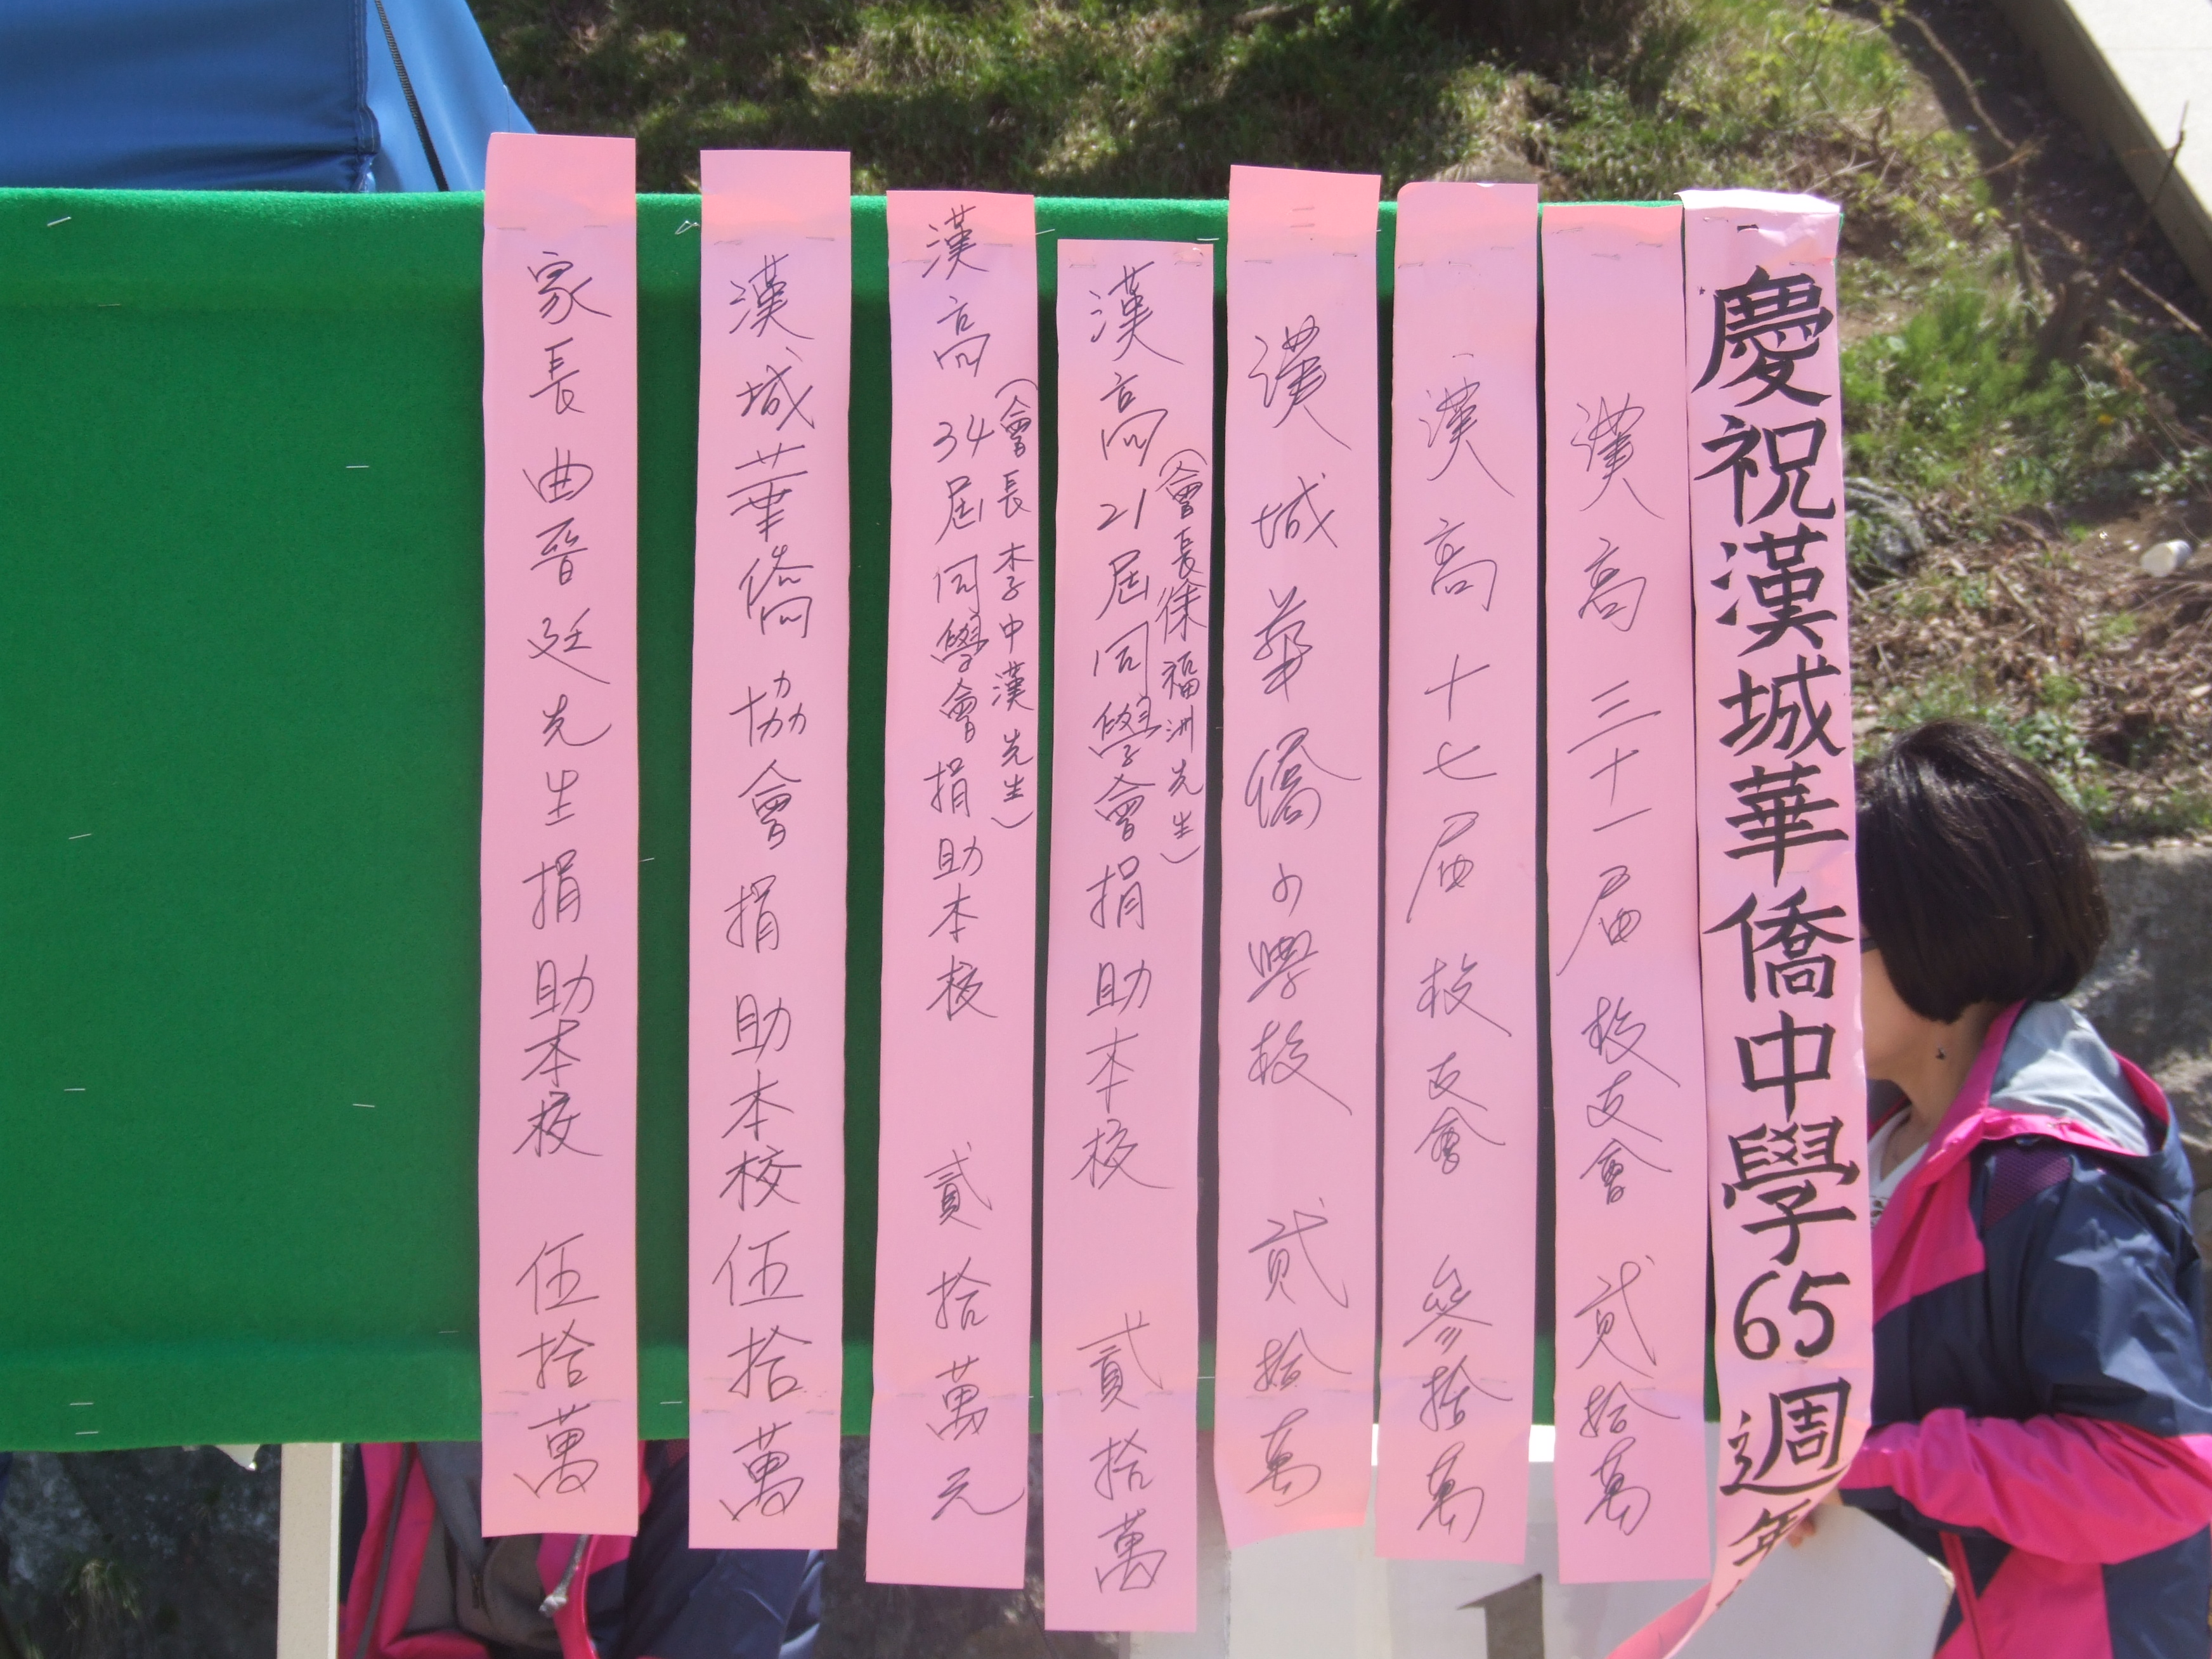 慶祝漢城華僑中學65週年
漢高三十一屆校友會 貳拾萬
漢高十七屆校友會 參拾萬
漢城華僑小學校 貳拾萬
漢高21屆同學會捐助本校 貳拾萬
(會長徐福洲先生)
漢高34屆同學會捐助本校 貳拾萬元
(會長李中漢先生)
漢城華僑協會捐助本校伍拾萬
家長曲晉廷先生捐助本校 伍拾萬
1